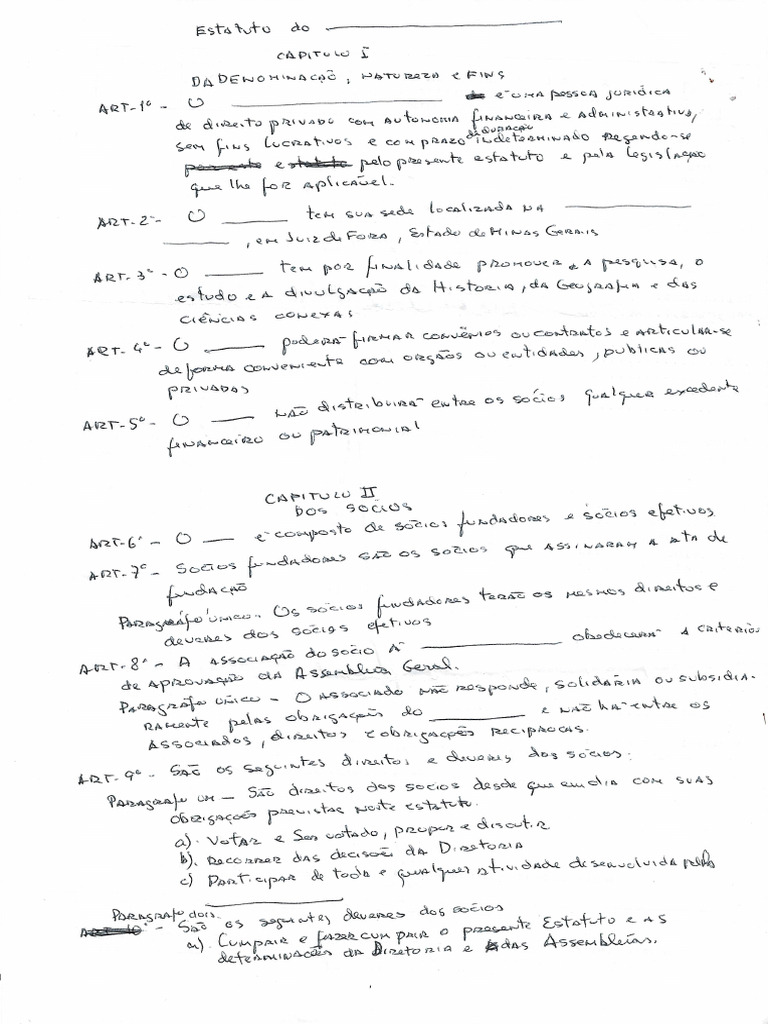 Estatuto do ____________
CAPITULO I
DA DENOMINAÇÃO, NATUREZA e FINS
ART-1º - O ____________ é uma pessoa jurídica
de direito privado com autonomia financeira e administrativa,
sem fins lucrativos e com prazo de duração indeterminado regendo-se
e pelo presente estatuto e pela legislação
que lhe for aplicável.
ART-2º - O ______ tem sua sede localizada na ____________
______, em Juiz de Fora, Estado de Minas Gerais
ART-3º - O ______ tem por finalidade promover a pesquisa, o
estudo e a divulgação da Historia, da Geografia e das
Ciências conexas
ART-4º - O ______ poderá firmar convênios ou contratos e articular-se
de forma conveniente com orgãos ou entidades, publicas ou
privadas
ART-5º - O ____ não distribuirá entre os sócios qualquer excedente
financeiro ou patrimonial
CAPITULO II
DOS SOCIOS
ART-6º - O ____ é composto de sócios fundadores e sócios efetivos
ART-7º - Socios fundadores são os socios que assinaram a ata de
fundação
Paragráfo único - Os sócios fundadores terão os mesmos direitos e
deveres dos sócios efetivos
ART-8º - A associação do sócio à ____________ obedecerá a criterio
de aprovação da Assembleia Geral.
Paragrafo único - O associado não responde, solidária ou subsidia-
riamente pelas obrigações do ________ e não há entre os
associados, direitos e obrigações reciprocas.
ART-9º - São os seguintes direitos e deveres dos sócios:
Paragrafo um - São direitos dos socios desde que em dia com suas
obrigações previstas neste estatuto.
a) Votar e ser votado, propor e discutir
b) Recorrer das decisões da Diretoria
c) Participar de toda e qualquer atividade desenvolvida pelo
____________
Paragrafo dois
- São os seguintes deveres dos sócios
a) Cumprir e fazer cumprir o presente Estatuto e as
determinações da Diretoria e das Assembleias.